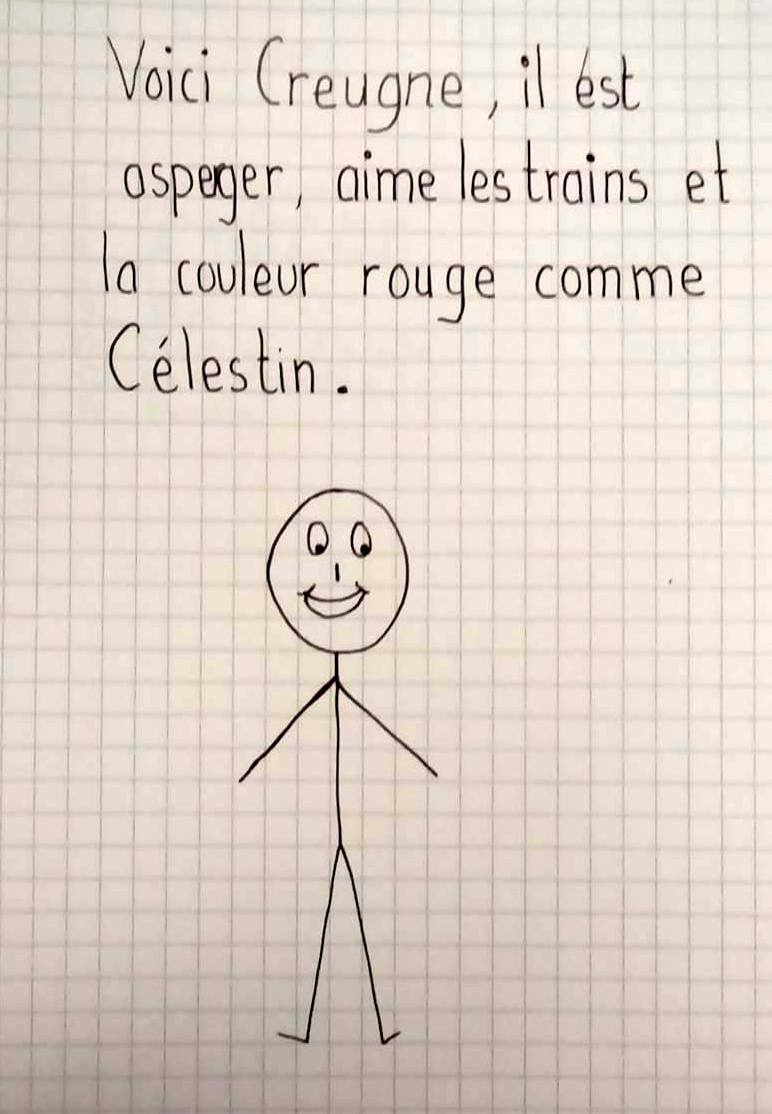 Voici Creugne, il ést
asperger, aime les trains et
la couleur rouge comme
Célestin.